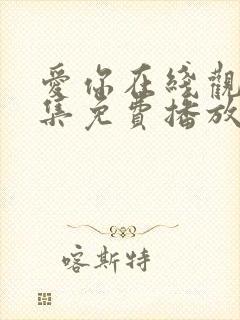 愛你在綫觀
集免費播放
喀斯特